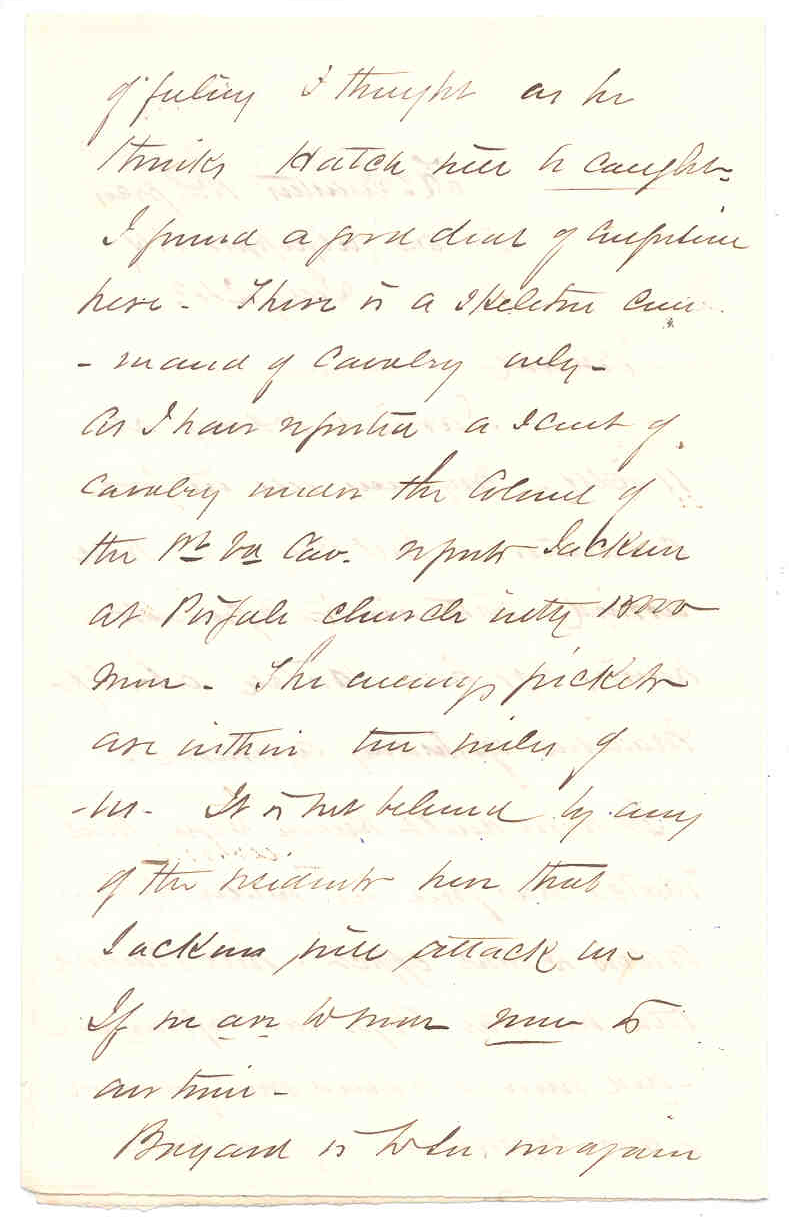 of feeling I thought as he
thinks Hatch will be caught-
I found a good deal of confusion
here - There is a Skeleton Com
- mand of Cavalry only -
As I have reported a Scout of
Cavalry under the Colonel of
the 1st Va Cav. reports Jackson
at church with 15000
men - The enemys pickets
are within ten miles of
- us - It is not believed by any
of the residents here that
Jackson will attack us -
If we are to move now is
our time -
Bayard is to see me again